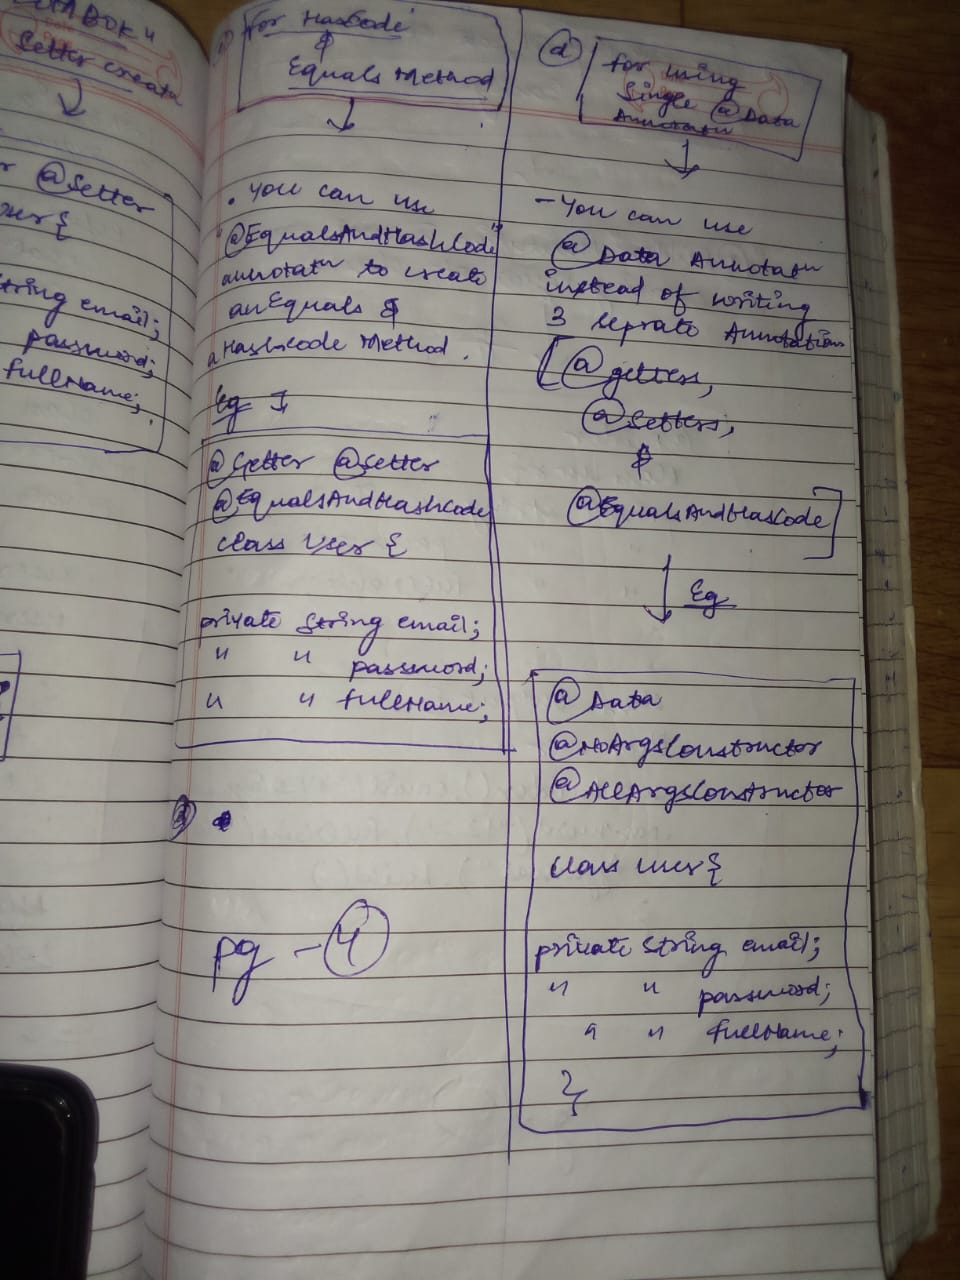 Setter create
@Setter
user {
String email;
password;
fullName;
for HasCode
&
Equals Method
. You can use
"@EqualsAndHashCode"
annotatn to create
an Equals &
a Hashcode Method.
Eg
@Getter @Setter
@EqualsAndHashCode
class User {
private String email;
" " password;
" " fullName;
3
pg - 4
d
for using
Single @Data
Annotatn
- You can use
@Data Annotatn
instead of writing
3 seprate Annotation
[@getters,
@Setters,
&
@EqualsAndHasCode]
Eg
@Data
@NoArgsConstructor
@AllArgsConstructor
class user {
private String email;
" " password;
" " fullName;
}